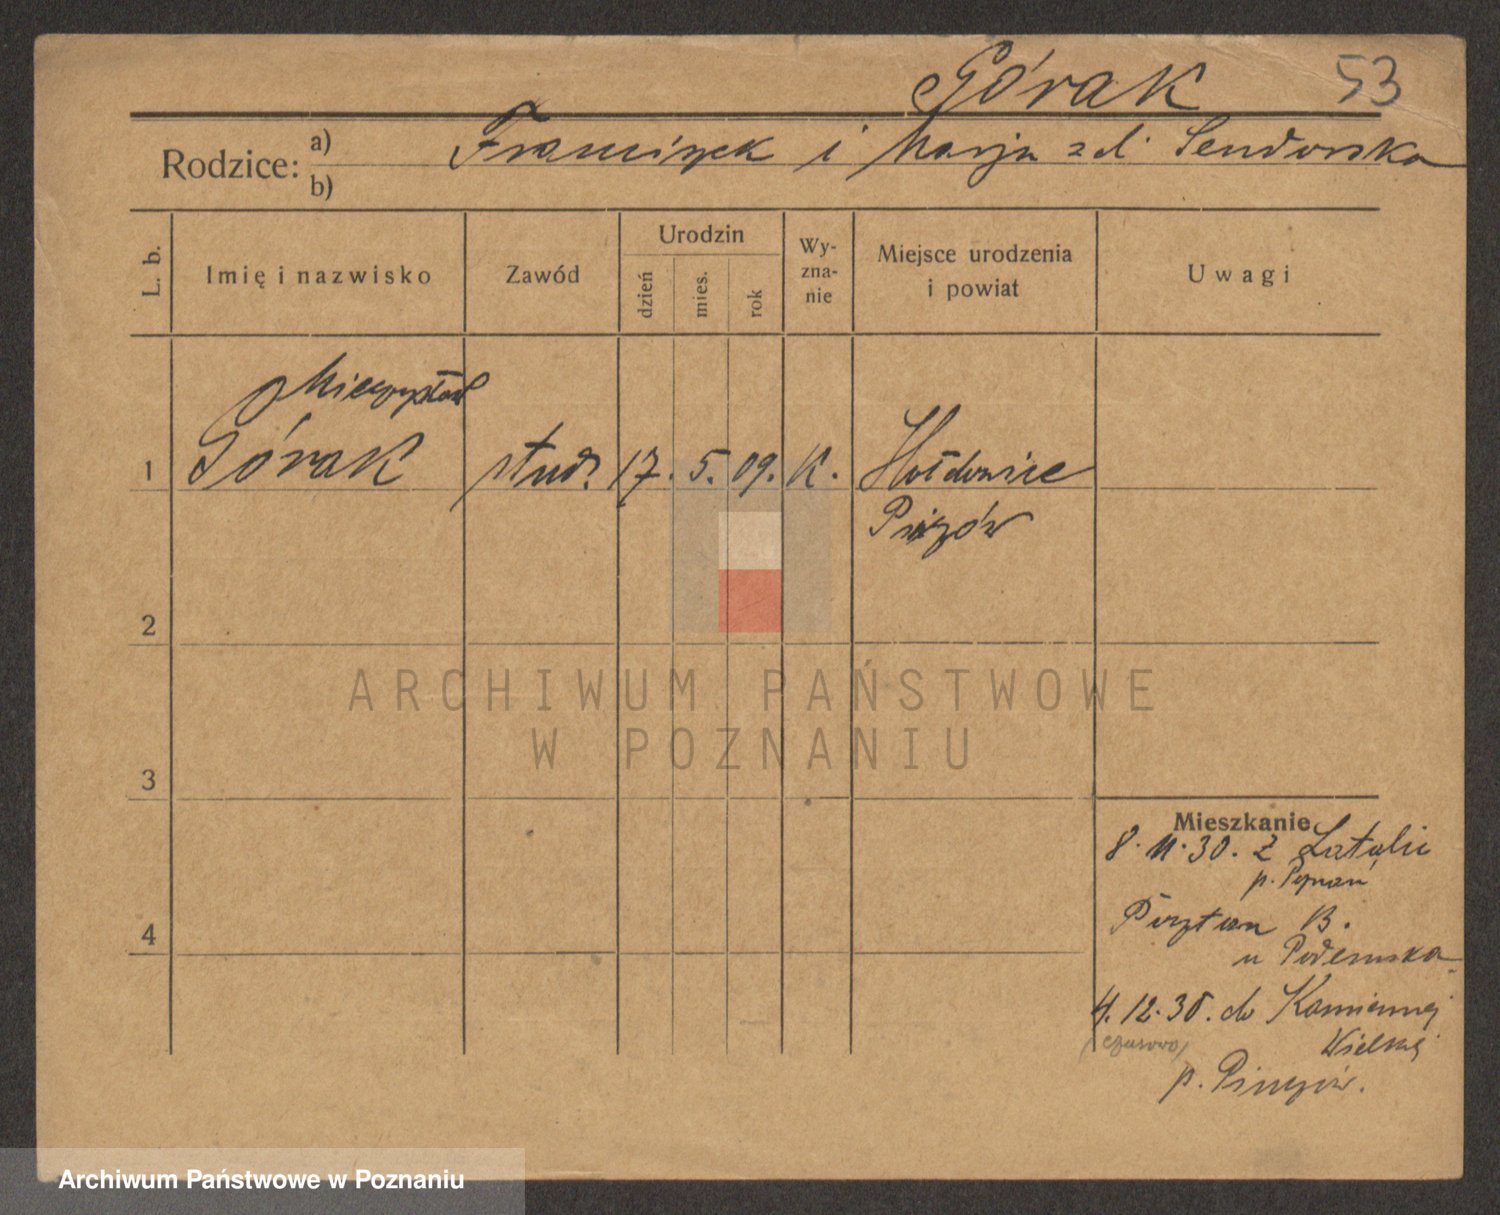 Górak 53
Rodzice: a) Franciszek i Marja zd. Sendorska
b)
L. b. Imię i nazwisko Zawód Urodzin dzień mies. rok Wy-zna-nie Miejsce urodzenia i powiat Uwagi
Mieczysław
1 Górak stud. 17. 5. 09. K. Hołdowice
Pińczów
2
ARCHIWUM PAŃSTWOWE
W POZNANIU
3
Mieszkanie
8. 11. 30. z Latalic
p. Poznań
B.
4
u Podemska
4. 12. 30. do Kamiennej
(czasowo) Wielkiej
p. Pinczów.
Archiwum Państwowe w Poznaniu